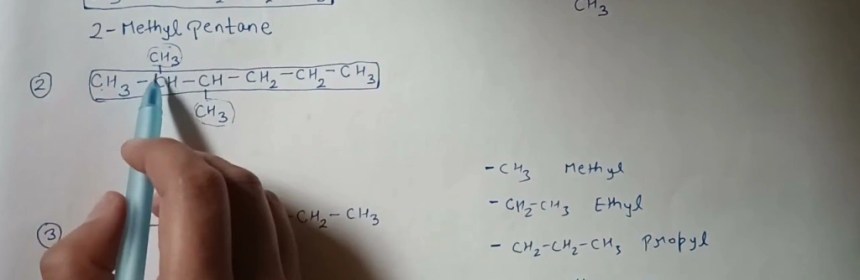 CH3
2-Methyl Pentane
CH3
② CH3-CH-CH-CH2-CH2-CH3
CH3
-CH3 Methyl
-CH2-CH3 Ethyl
③ -CH2-CH3
-CH2-CH2-CH3 Propyl